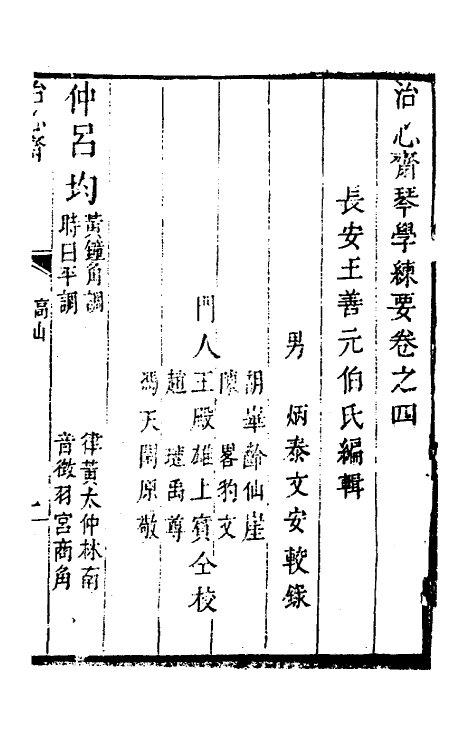 治心齋琴學練要卷之四
長安王善元伯氏編輯
男 炳泰文安較錄
胡華齡仙崖
陳畧豹文
門人王殿雄上賓仝校
趙璉禹尊
馮天閑原敬
仲呂均
黃鐘角調
時曰平調
律黃太仲林南
音徵羽宮商角
治心齋
高山
一